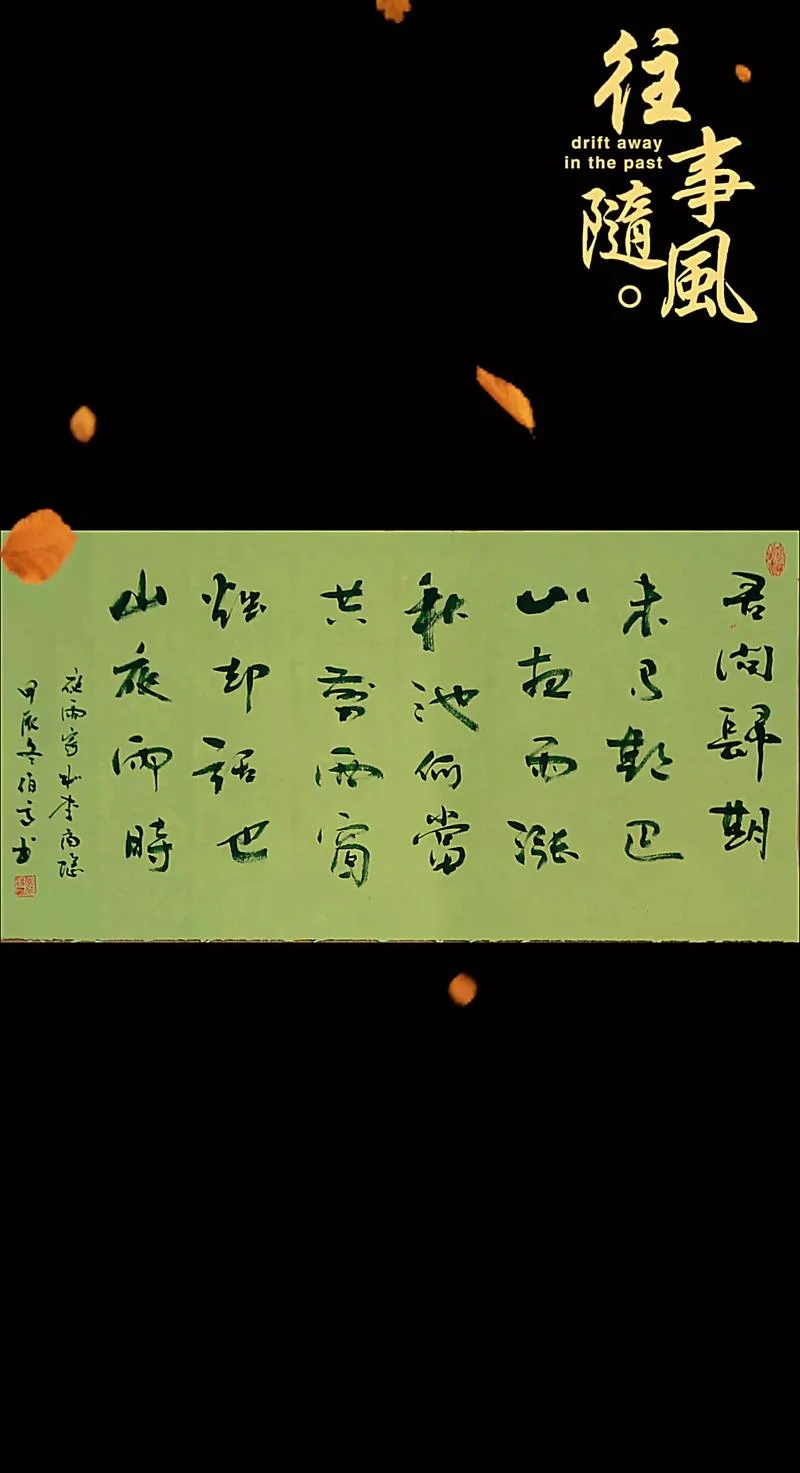 往事隨風
drift away
in the past
君問歸期
未有期巴
山夜雨漲
秋池何當
共剪西窗
燭却話巴
山夜雨時
夜雨寄北李商隱
甲辰冬伯書